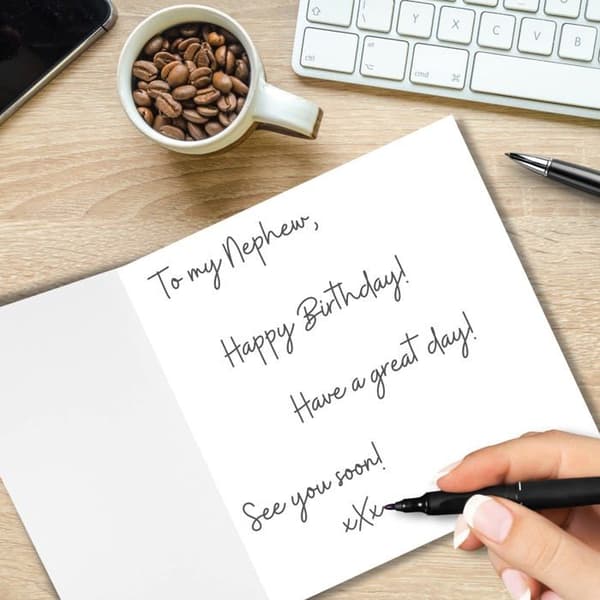 Y X C V B
ctrl alt cmd
To my Nephew,
Happy Birthday!
Have a great day!
See you soon!
xXx